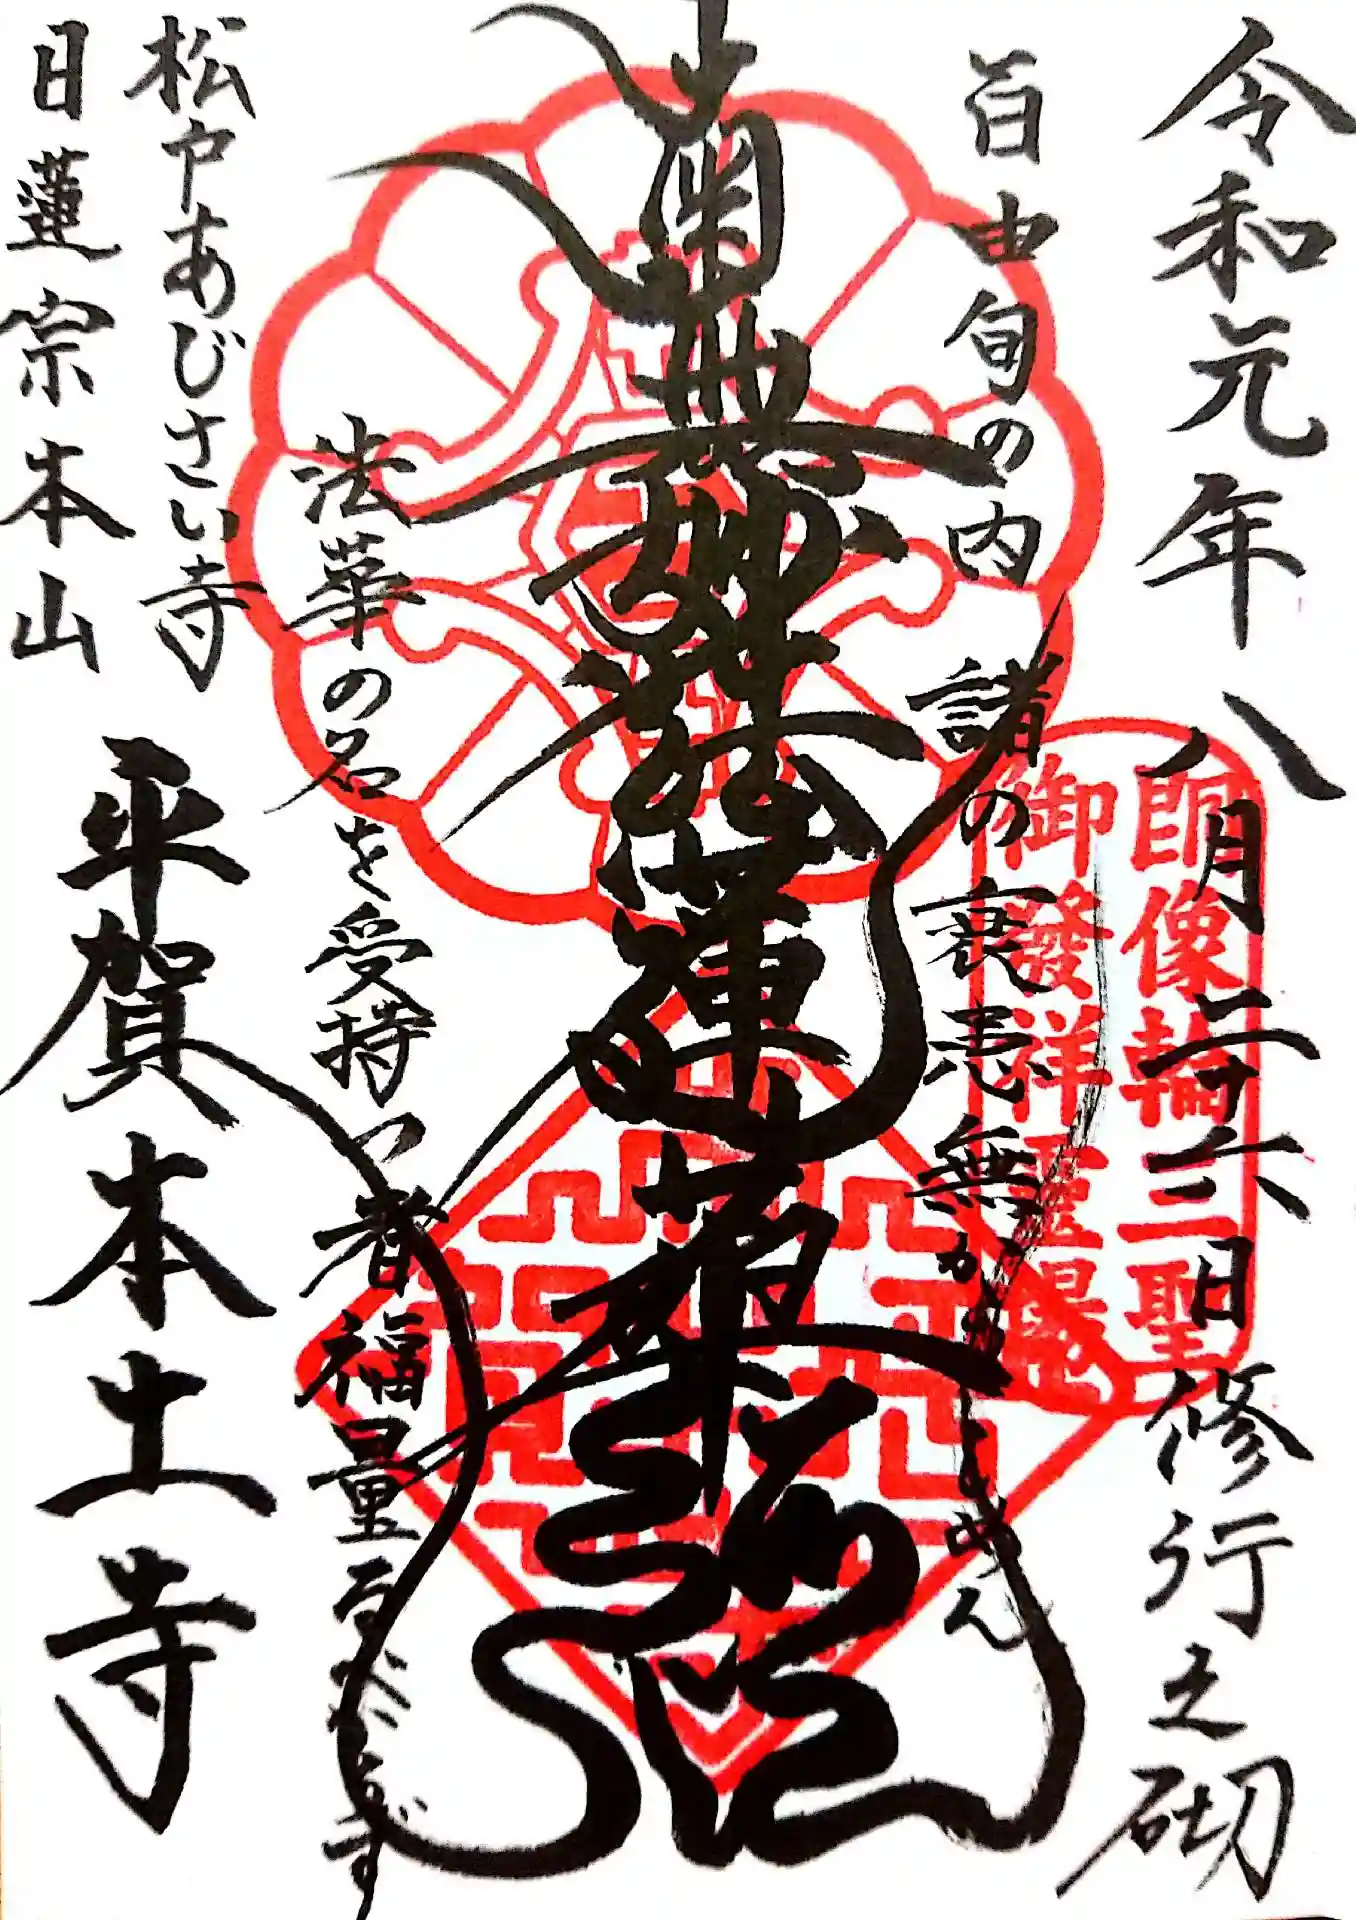 令和元年 八月二十六日 修行之砌
朗像輪三聖
御發祥霊場
百由旬の内 諸の衰患無からしめん
南無妙法蓮華経
法華の名を受持つ者福量るべからず
松戸あじさい寺
日蓮宗本山
平賀本土寺